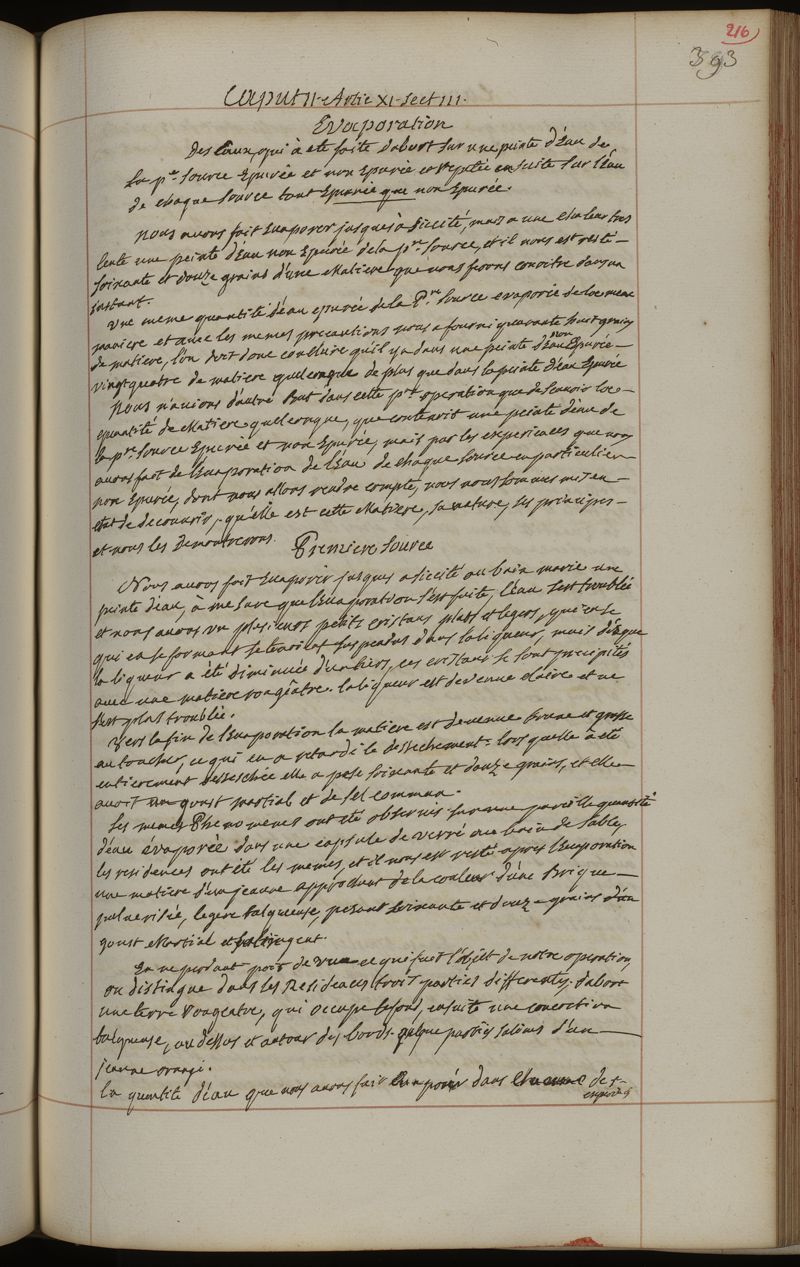 216
393
Caput II. Artic XI. Sect III.
Evaporation
Des Eaux, qui à eté faite dabort sur une peinte d'Eau de
La pre. Source Epurée et non Epurée et repetée ensuite sur l'Eau
de chaque Source tant Epurée que non Epurée.
Nous avons fait Evaporer jusques à siccité, mais a une chaleur tres
lente une peinte d'Eau non Epurée de la pre. source, et il nous est resté
soixante et douze grains d'une Matiere que nous ferons conoitre dans un
instant.
Une meme quantité d'eau epurée de la Pre. Source evaporée de loc meme
maniere et avec les memes precautions nous a fourni quarante huit grains
de matiere, l'on doit donc conclure qu'il y a dans une peinte d'Eau non Epurée
vingt quatre de matiere quelconque de plus que dans la peinte d'Eau Epurée
Nous n'avions d'autre But dans cette pre. operation que de scavoir la
quantité de Matiere quelconque, que contenoit une peinte d'eau de
la pre. Source Epurée et non Epurée, mais par les experiences que nous
avons fait de l'Evaporation de l'Eau de chaque Source en particulier
non Epurée, dont nous allons rendre compte, nous nous sommes mis en
etat de decouvrir, qu'elle est cette Matiere, sa nature, ses principes
et nous les Demontrerons.
Premiere Source
Nous avons fait Evaporer jusques a siccité au bain marie une
peinte d'eau, à mesure que l'Evaporation s'est faite, l'eau s'est troublée
et nous avons vu plusieurs petits cristaux plats et legers, que en se
qui en se formant se tenoient suspendus dans la liqueur, mais dèsque
la liqueur a été Diminuée d'un tiers, ces cristaux se sont precipités
avec une matiere rougeâtre. la liqueur est devenue claire et ne
s'est plus troublée.
Vers la fin de l'Evaporation la matiere est devenue brune et grasse
au toucher, ce qui en a retardé le dessechement: lors quelle à été
entierement dessechée elle a pesé soixante et douze grains, et elle
avoit un goust martial et de sel commun.
Les memes Phenomenes ont eté observés sur une pareille quantité
d'eau évaporée dans une capsule de verre au bain de sable,
les residences ont été les memes, et il nous est resté apres l'Evaporation
une matiere d'un jeaune approchant de la couleur d'une Brique
pulverisée, legere talqueuse, pesant soixante et douze grains d'un
goust Martial et astringent.
En ne perdant point de vue ce qui fait l'objèt de notre operation,
on distingue dans les Residences trois parties differentes; d'abort
une terre Rougeatre, qui occupe le fond, ensuite une concretion
talqueuse, au dessus et autour des bords quelque parties salines d'un
jeaune orangé.
La quantité d'eau que nous avons fait Evaporer dans chacune de